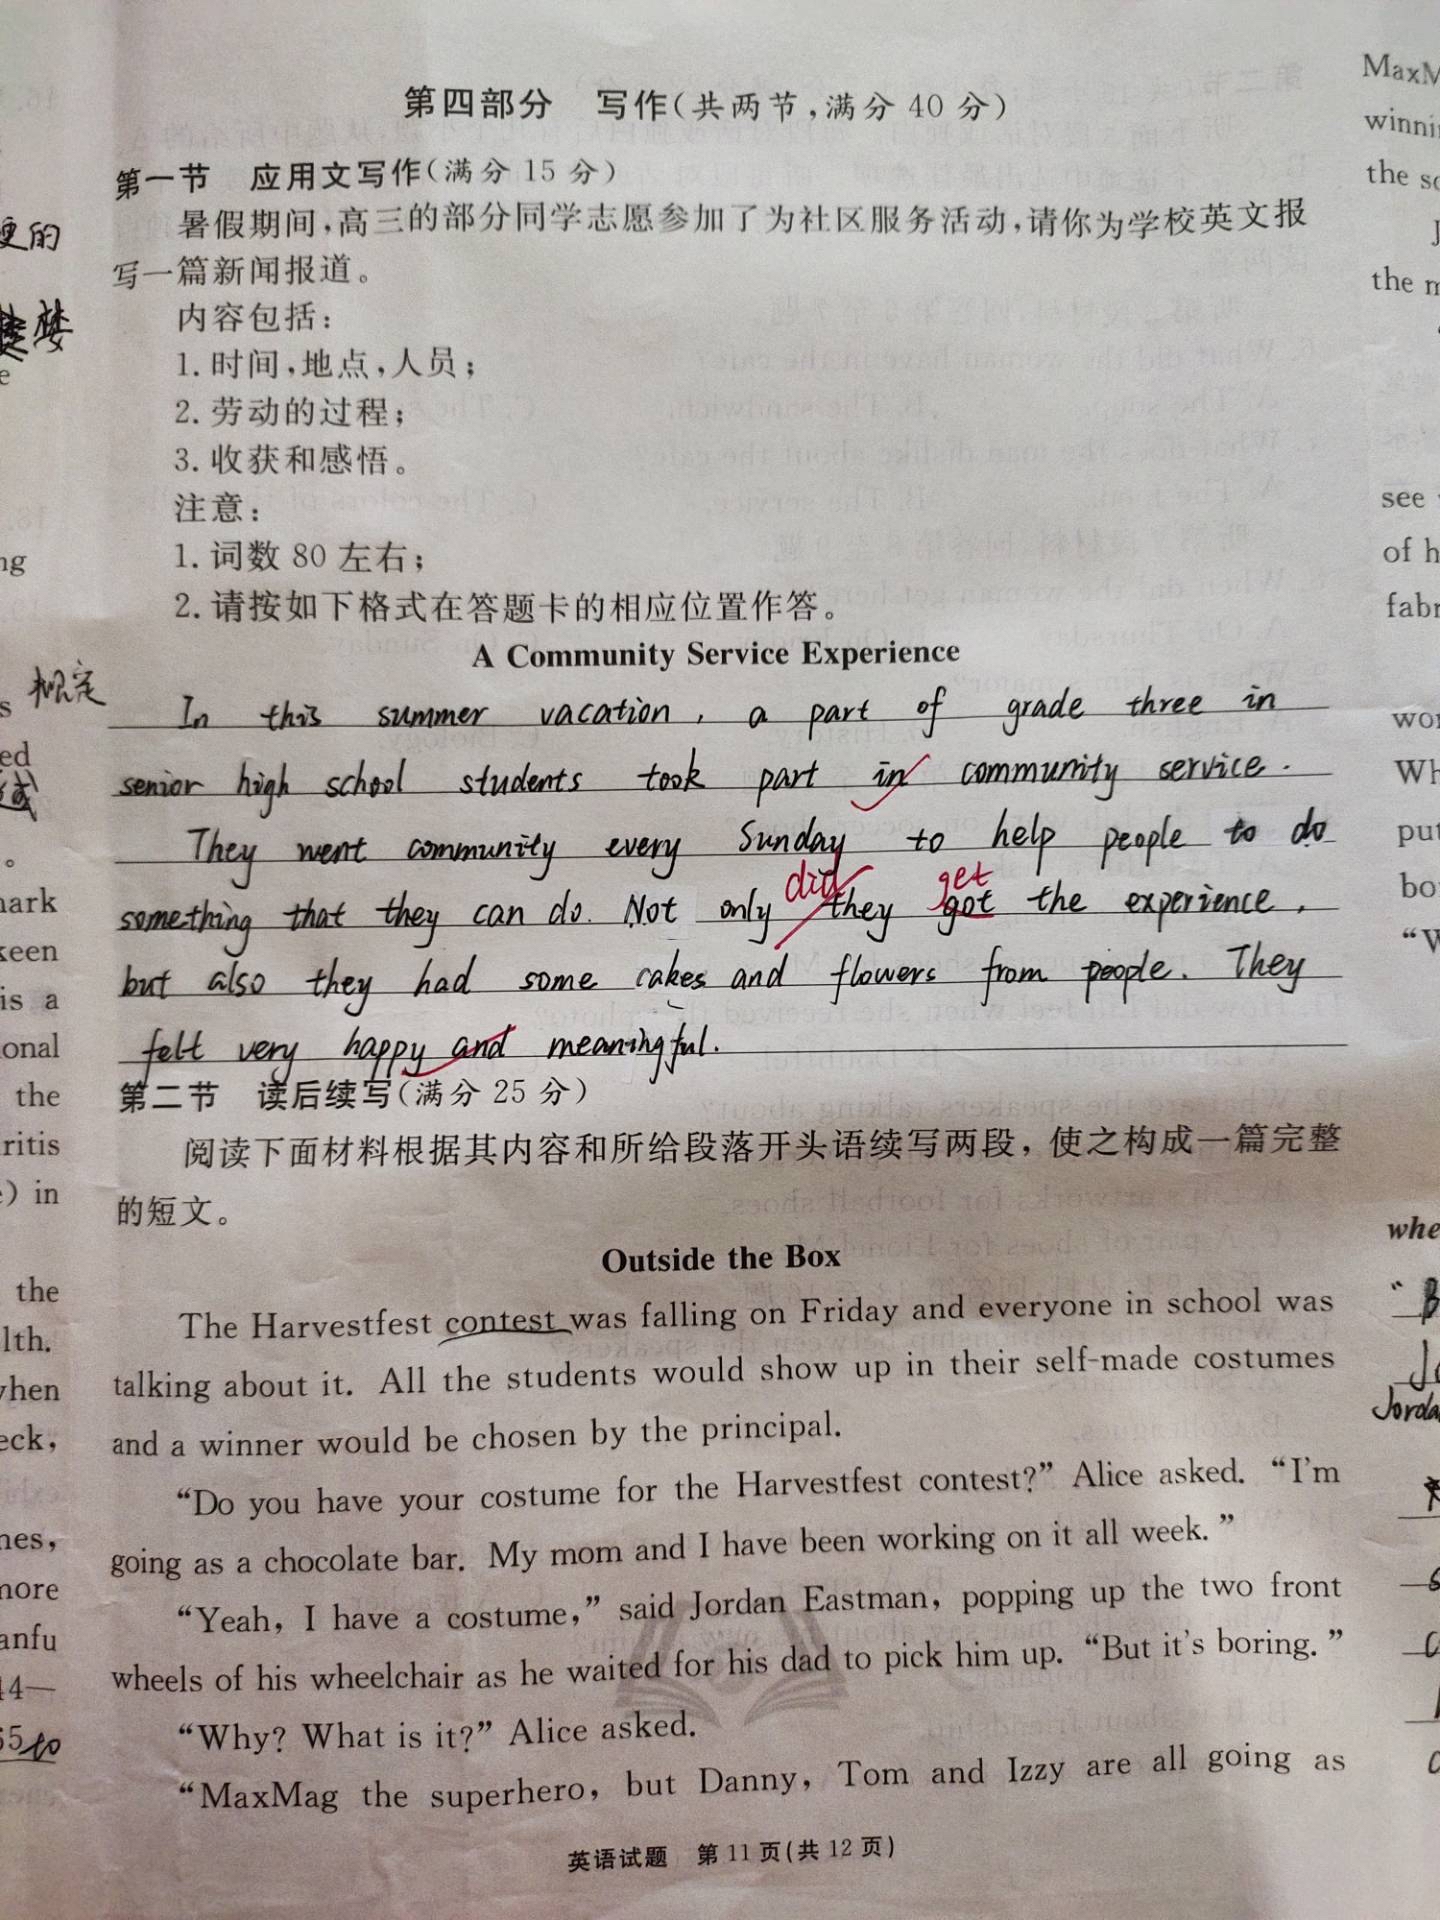 第四部分 写作(共两节,满分 40 分)
第一节 应用文写作(满分 15 分)
暑假期间,高三的部分同学志愿参加了为社区服务活动,请你为学校英文报
写一篇新闻报道。
内容包括:
1. 时间,地点,人员;
2. 劳动的过程;
3. 收获和感悟。
注意:
1. 词数 80 左右;
2. 请按如下格式在答题卡的相应位置作答。
A Community Service Experience
In this summer vacation, a part of grade three in
senior high school students took part in community service.
They went community every Sunday to help people to do
did get
something that they can do. Not only they got the experience,
but also they had some cakes and flowers from people. They
felt very happy and meaningful.
第二节 读后续写(满分 25 分)
阅读下面材料根据其内容和所给段落开头语续写两段，使之构成一篇完整
的短文。
Outside the Box
The Harvestfest contest was falling on Friday and everyone in school was
talking about it. All the students would show up in their self-made costumes
and a winner would be chosen by the principal.
“Do you have your costume for the Harvestfest contest?” Alice asked. “I'm
going as a chocolate bar. My mom and I have been working on it all week.”
“Yeah, I have a costume,” said Jordan Eastman, popping up the two front
wheels of his wheelchair as he waited for his dad to pick him up. “But it's boring.”
“Why? What is it?” Alice asked.
“MaxMag the superhero, but Danny, Tom and Izzy are all going as
英语试题 第 11 页(共 12 页)
更的
ng
规定
ed
mark
keen
is a
ional
the
ritis
) in
the
lth.
when
eck,
nes,
more
anfu
14—
65 to
MaxM
winni
the sc
J
the m
see
of h
fabr
wor
Wh
put
bo
“W
whe
Jorda